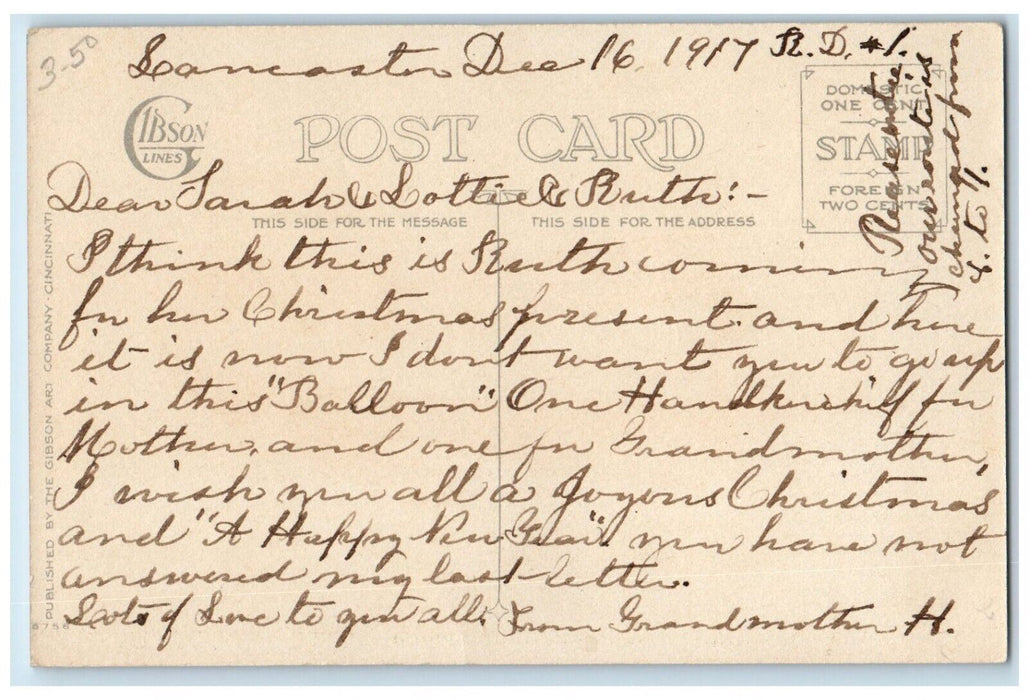 3.50
Lancaster Dec 16, 1917 R.D. #1.
GIBSON
LINES
POST CARD
DOMESTIC
ONE CENT
STAMP
FOREIGN
TWO CENTS
Please notice
our route is
changed from
to 1.
THIS SIDE FOR THE MESSAGE
THIS SIDE FOR THE ADDRESS
Dear Sarah & Lottie & Ruth:-
I think this is Ruth coming
for her Christmas present. and here
it is now I dont want you to go up
in this "Balloon" One Handkerchief for
Mother, and one for Grandmother,
I wish you all a Joyous Christmas
and "A Happy New Year". you have not
answered my last letter.
Lots of Love to you all. From Grandmother H.
PUBLISHED BY THE GIBSON ART COMPANY · CINCINNATI